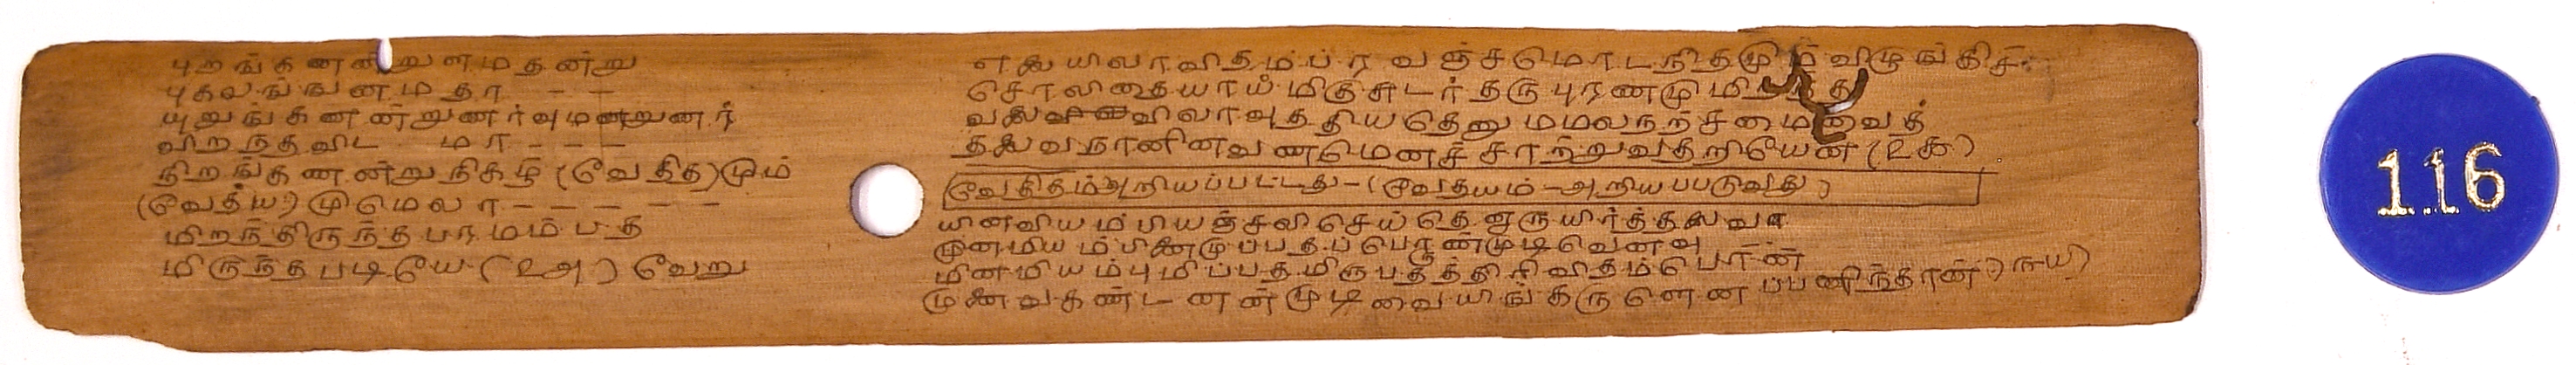 புறங்கணன்றுளமதன்று
புகலங்ஙனமதா - -
யுறுங்கினன்றுணர்வுமன்றுணர்
விறந்தவிட மா - - -
நிறங்கணன்றுநிகழ் (வேதித)மும்
(வேத்ய) முமெலா - - - - - -
மிறந்திருந்தபரமம்பத
மிருந்தபடியே (௨௮) வேறு
எலையிலாவிதம்ப்ரவஞ்சமொடநிதமும்விழுங்கிச்
சொலிதையாய் மிகுசுடர் தருபூரணமுமிறந்து
வலவிலாவுத்தியதெனு மமலநற்சமைவைத்
தலைவநானினவணமெனச் சாற்றுவதறியேன் (௨௯)
வேதிதம்அறியப்பட்டது-(வேத்யம்-அறியப்படுவது)
யினவியம்பியஞ்சலிசெய்தெனுருயிர்த்தலைவ
முனமியம்பினைமுப்பதப் பெரூண்முடிவெனவு
மினமியம்புமிப்பதமிருபத்த்திரிவிதம்பொன்
முனைவகண்டனன்முடிவையிங்கருளெனப்பணிந்தான் (௩௰)
116